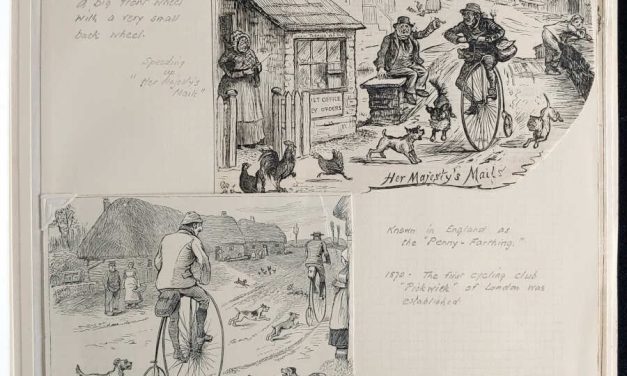 a big front wheel
with a very small
back wheel.
Speeding
up
"Her Majesty's
Mails"
POST OFFICE
EY ORDERS
Her Majesty's Mails
Known in England as
the "Penny-Farthing."
1870 - The first cycling club
"Pickwick" of London was
established